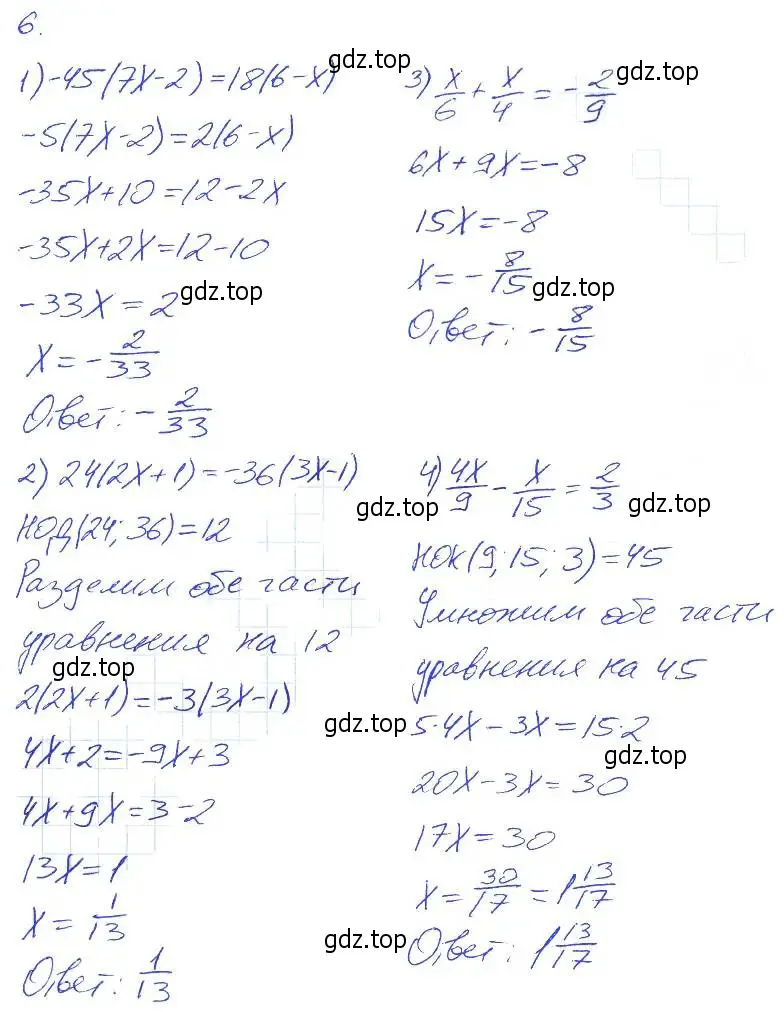 6.
1) -45(7x-2)=18(6-x)
-5(7x-2)=2(6-x)
-35x+10=12-2x
-35x+2x=12-10
-33x=2
x=-2/33
Ответ: -2/33
2) 24(2x+1)=-36(3x-1)
НОД(24; 36)=12
Разделим обе части
уравнения на 12
2(2x+1)=-3(3x-1)
4x+2=-9x+3
4x+9x=3-2
13x=1
x=1/13
Ответ: 1/13
3) x/6+x/4=-2/9
6x+9x=-8
15x=-8
x=-8/15
Ответ: -8/15
4) 4x/9-x/15=2/3
НОК(9; 15; 3)=45
Умножим обе части
уравнения на 45
5·4x-3x=15·2
20x-3x=30
17x=30
x=30/17=1 13/17
Ответ: 1 13/17
gdz.top
gdz.top
gdz.top
gdz.top
gdz.top
gdz.top
gdz.top
gdz.top
gdz.top
gdz.top
gdz.top